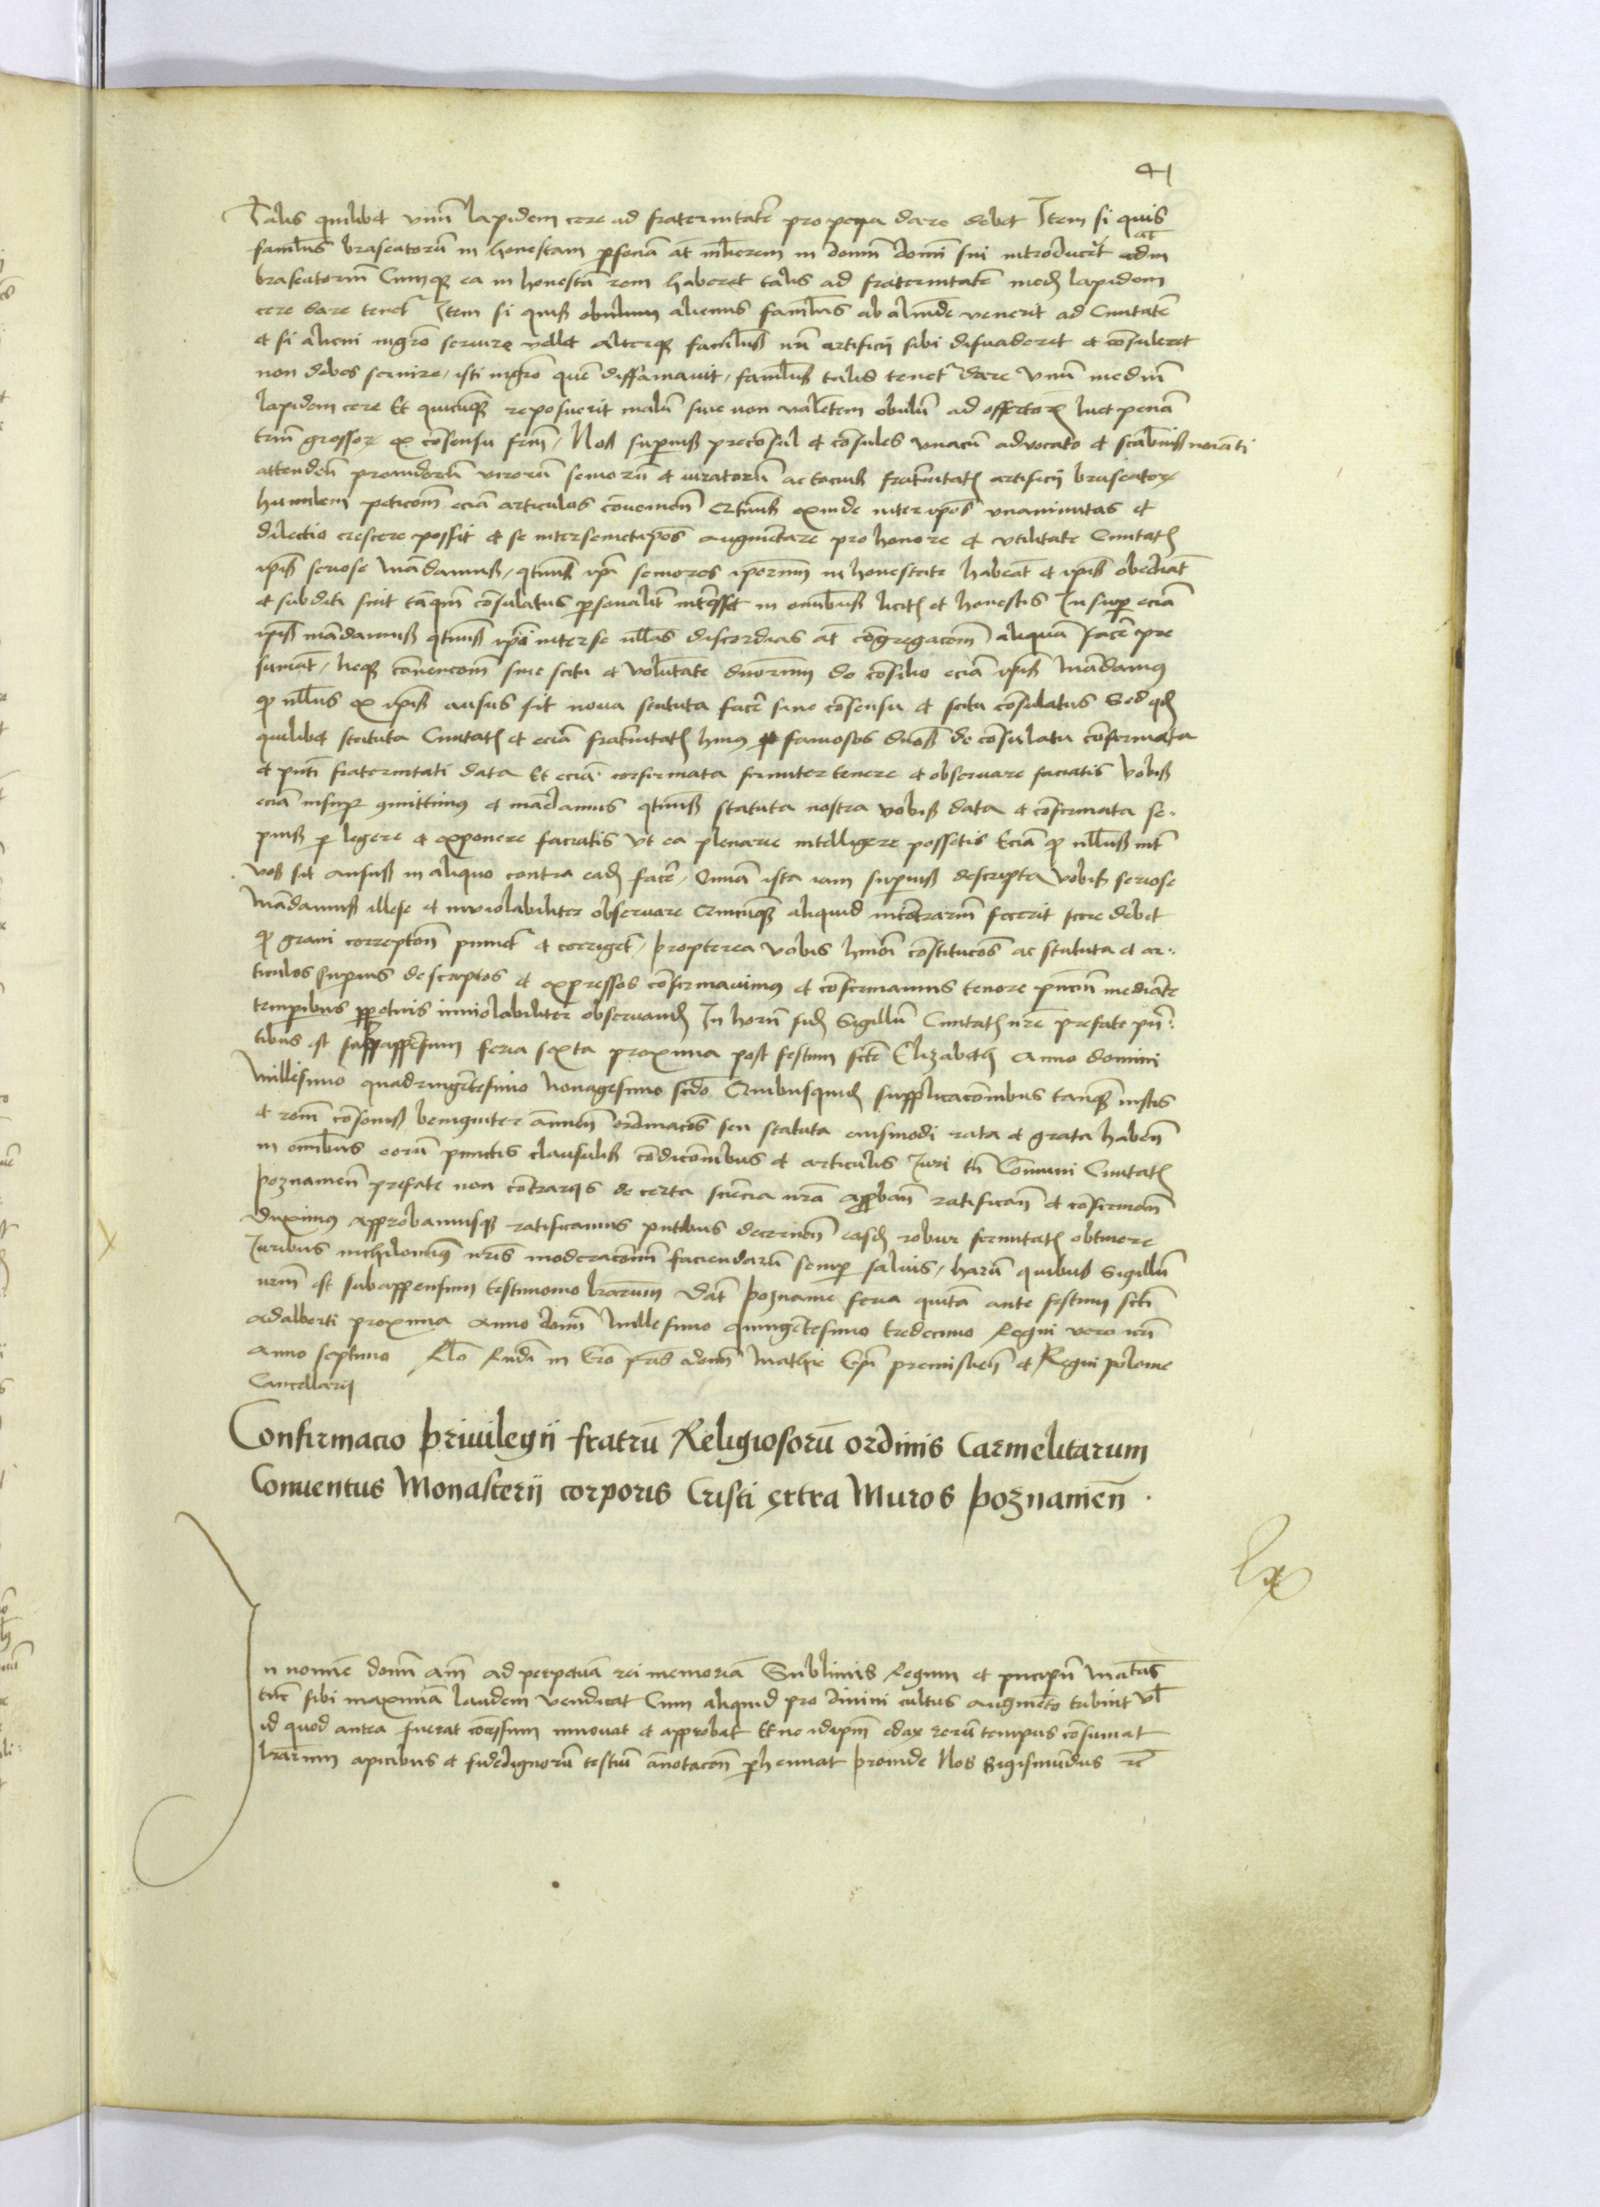 41
Talis quilibet vnū lapidem cere ad fraternitatē pro pena dare debet Item si quis
famulus braseatorū in honestam personā aut mulierem in domū domini sui introduxerit aut in
braseatoriū Cumque ea in honestā rem haberet talis ad fraternitatē mediū lapidem
cere dare tenetur Item si quis alienus famulus ab aliunde venerit ad Ciuitatē
et si alicui mgrō seruire vellet alterque famulus artificii sibi disuaderet et consuleret
non debes seruire, isti mgrō quē diffamauit, famulus talis tenetur dare vnū mediū
lapidem cere Et quicunque reposuerit malū siue non valentem obulū ad offertoriū luet penā
triū grossorum ex consensu frm̄, Nos superius preconsul et consules vnacū aduocato et scabinis noiāti
attendentes prouidorū virorū seniorū et iuratorū ac tocius fraternitatis artificii braseatorum
humilem peticōem eciā articulos conuenien̄ quatenus exinde inter ipsos vnanimitas et
dilectio crescere possit et se inter semetipsos augmentare pro honore et vtilitate Ciuitatis
ipsis seriose Mandamus, quatenus ipsi seniores ipsorum in honestate habeāt et ipsis obediāt
et subditi sint tanquā consulatus personaliter interesset in omnibus licitis et honestis Insuper eciā
ipsis mandamus quatenus ipsi inter se nullas discordias aut congregacōem aliquā facere pre
sumāt, neque conuencōem sine scitu et voluntate duorum de consilio eciā ipsis Mandamus
quod nullus ex ipsis ausus sit noua statuta facere sine consensu et scitu consulatus Sed quod
quilibet statuta Ciuitatis et eciā fraternitatis huius per famosos duos de consulatu confirmata
et pn̄ti fraternitati data Et eciā confirmata firmiter tenere et obseruare faciatis Vobis
eciā insuper committimus et mandamus quatenus statuta nostra vobis data et confirmata se-
pius per legere et exponere faciatis vt ea plenarie intelligere possetis Eciā quod nullus int
vos sit ausus in aliquo contra eadem facere, Omnia ista iam superius descripta vobis seriose
Mandamus illese et inuiolabiliter obseruare Quicunque aliquid in contrariū fecerit scire debet
quod graui correptōe puniet et corriget, Propterea vobis huiōi constitucōes ac statuta et ar-
ticulos superius descriptos et expressos confirmauimus et confirmamus tenore pn̄ciū mediante
temporibus perpetuis inuiolabiliter obseruandum In horū fidem Sigillū Ciuitatis nrē prefate pn̄-
tibus est subappensum feria sexta proxima post festum scte Elizabeth Anno domini
Millesimo quadringentesimo Nonagesimo scdo Quibusquidem supplicacōnibus tanquam iustis
et rōni consonis benigniter annuen̄ ordinacōes seu statuta eiusmodi rata et grata haben̄
in omnibus eorū punctis clausulis condicōnibus et articulis Iuri tn̄ Cōmuni Ciuitatis
Poznanien̄ prefate non contrariis de certa sciencia nrā approban̄ ratifican̄ et confirman̄
duximus approbamusque ratificamus pn̄tibus decernen̄ easdem robur firmitatis obtinere
Iuribus nichilominus nris moderacōnū faciendarū semper saluis, harū quibus Sigillū
nrm̄ est subappensum testimonio lrārum Dat Poznanie feria quinta ante festum scti
Adalberti proxima Anno domi Millesimo quingentesimo tredecimo Regni vero nri
Anno septimo Rlō Rndi in Cro pris domi Mathie Epi premislien̄ et Regni polonie
Cancellarij
Confirmacio Priuilegii fratrū Religiosorū ordinis Carmelitarum
Conuentus Monasterii corporis Cristi extra Muros Poznanien̄ .
In nomine domi amē ad perpetuā rei memoriā Sublimis Regum et pncipū Maiestas
tūc sibi maximā laudem vendicat Cum aliquid pro diuini cultus augmento tribuit vl
id quod antea fuerat concessum innouat et approbat Et ne idipsm̄ edax rerū tempus consumat
lrārum apicibus et fidedignorū testiū annotacōe perhennat Proinde Nos Sigismundus rc